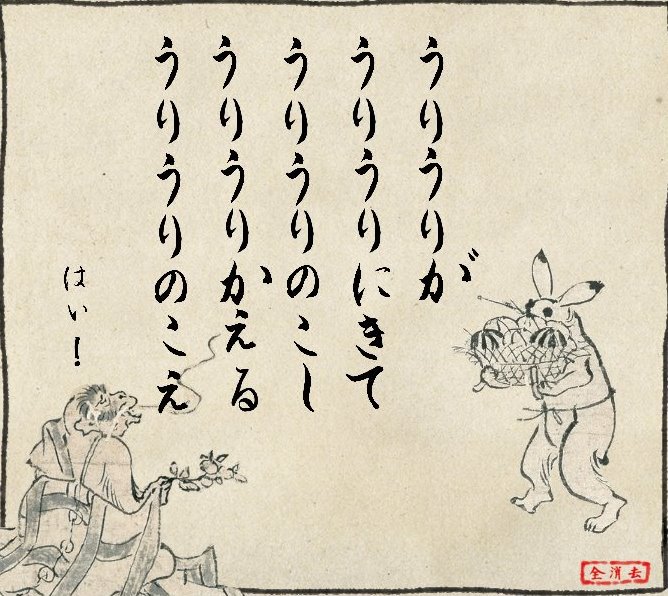 うりうりが
うりうりにきて
うりうりのこし
うりうりかえる
うりうりのこえ
はい！
全消去